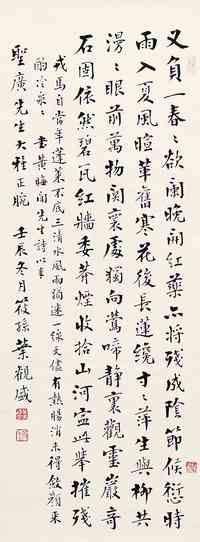 又負一春〻欲闌晚開紅藥亦將殘成陰節候愆時
雨入夏風暄舊寒花後長蓮纔寸〻萍生與柳共
漫〻眼前萬物裏處獨向鶯啼靜裏觀靈巖奇
石固依然碧瓦紅牆委莽煙收拾山河虛此舉摧殘
戎馬自當年蓬萊不底三清水風雨猶迷一線天儘有熱腸消未得顏來
酌冷泉〻 書黃晦聞先生詩以奉
聖廣先生大雅正腕 壬辰冬月筱孫葉觀盛